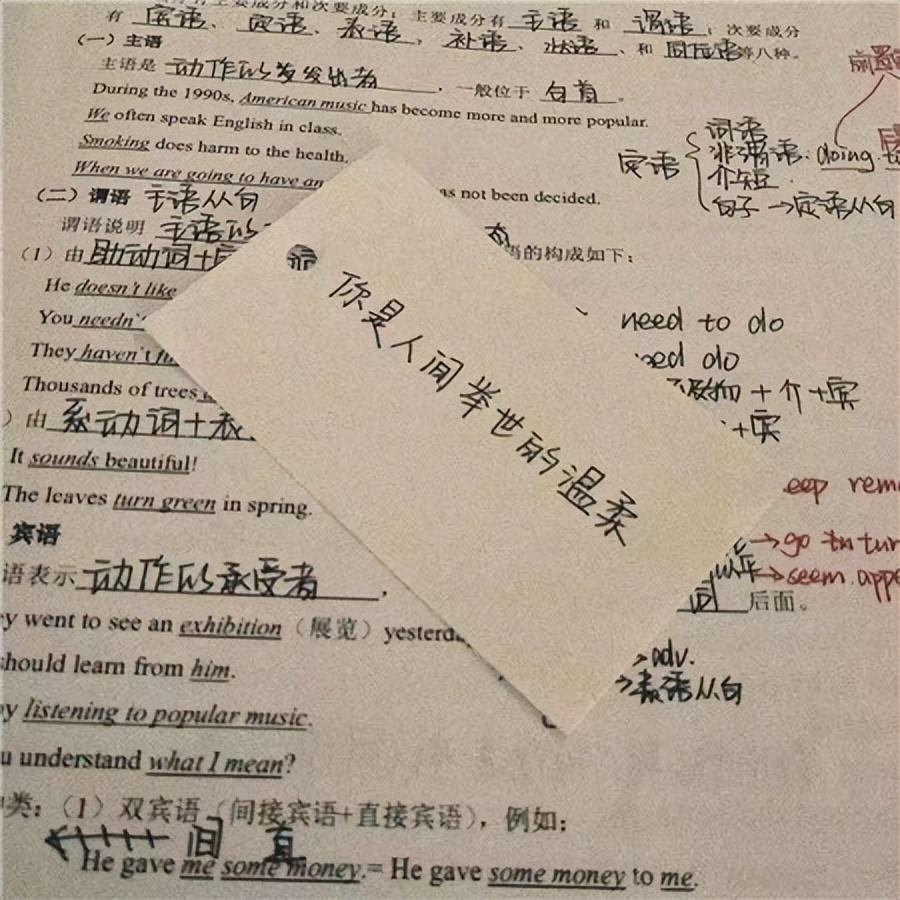 有主要成分和次要成分；主要成分有 主语 和 谓语；次要成分
有 宾语、定语、表语、补语、状语、和 同位语等八种。
（一）主语
主语是 动作的发出者，一般位于 句首。
During the 1990s, American music has become more and more popular.
We often speak English in class.
Smoking does harm to the health.
When we are going to have an
as not been decided.
定语
词语
非谓语：doing. to
介短.
句子→定语从句
（二）谓语 主语从句
谓语说明 主语的
的构成如下：
（1）由助动词+
He doesn't like
You needn't
They haven't
Thousands of trees
need to do
need do
+介+宾
+宾
）由 系动词+表
It sounds beautiful!
The leaves turn green in spring.
你是人间举世的温柔
eep rema
→go to tur
→seem. appe
宾语
语表示 动作的承受者，
后面。
y went to see an exhibition（展览）yesterda
→adv.
→表语从句
should learn from him.
y listening to popular music.
u understand what I mean?
类：（1）双宾语（间接宾语+直接宾语），例如：
间 直
He gave me some money.= He gave some money to me.